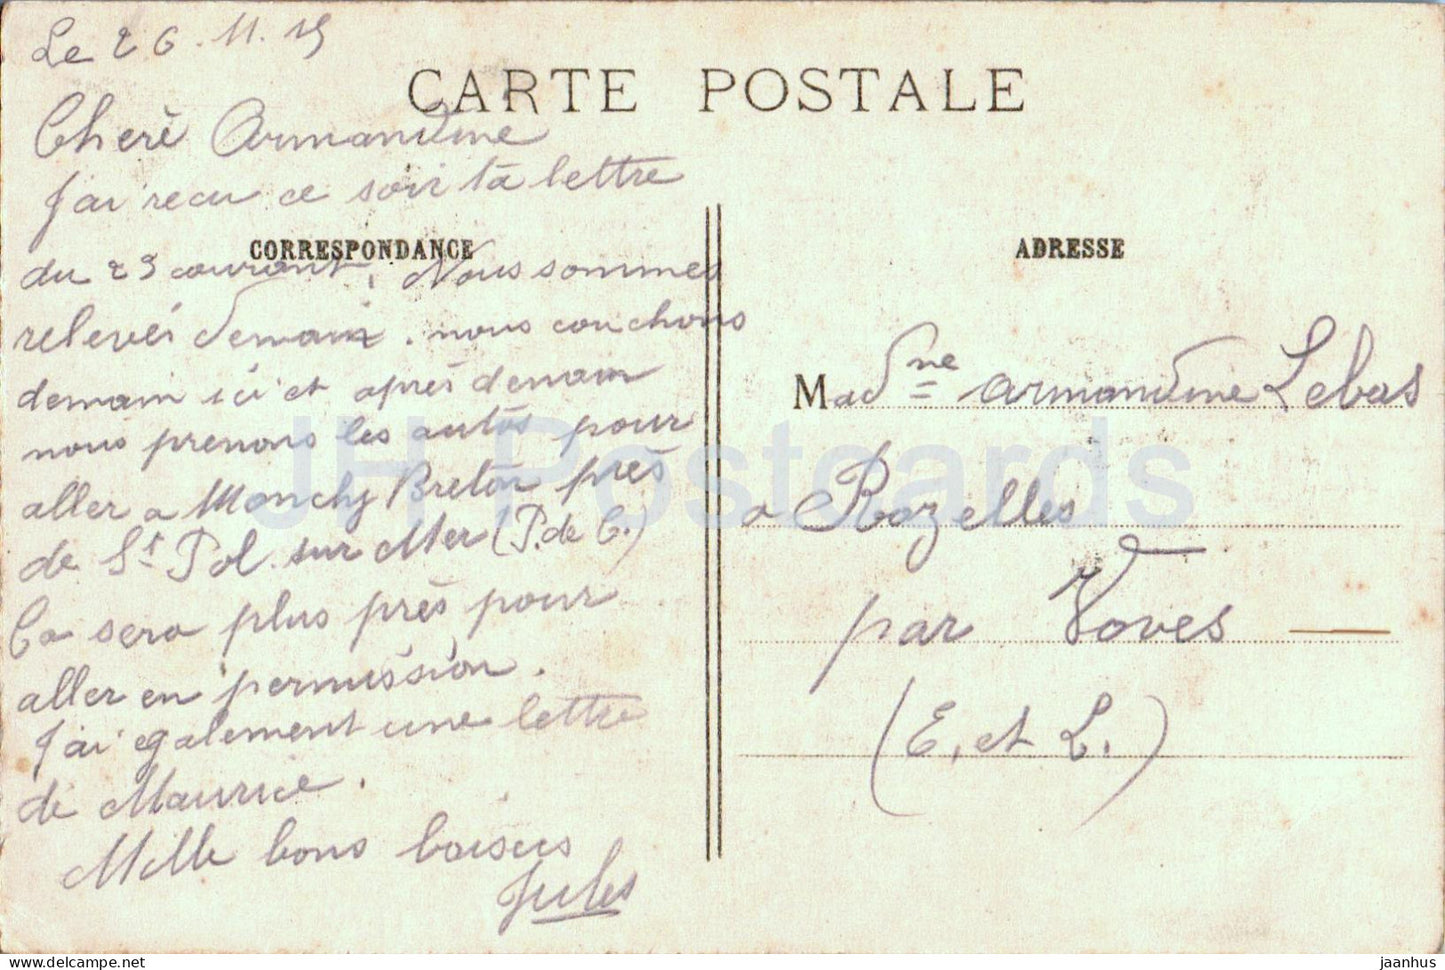 Le 26.11.15
CARTE POSTALE
Cherè Armandine
J'ai recu ce soir ta lettre
CORRESPONDANCE
du 23 courant. Nous sommes
relevés demain. nous couchons
demain ici et après demain
nous prenons les autos pour
aller a Monchy Breton près
de St Pol sur Mer (P. de C.)
Ca sera plus près pour
aller en permission.
J'ai egalement une lettre
de Maurice.
Mille bons baisers
Jules
ADRESSE
Madme Armandine Lebas
a Rozelles
par Voves
(E. et L.)
JH Postcards
jaanhus